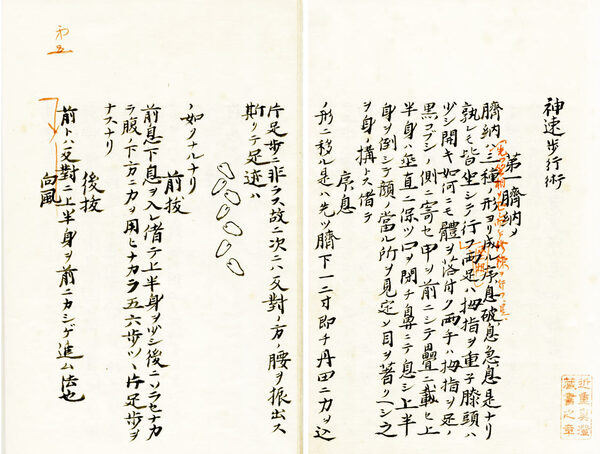 神速歩行術
第一臍納ヲ
臍納ハ三種ノ形ヨリ成ル序息破息急息是ナリ
孰レモ皆坐シテ行フ両足ハ拇指ヲ重子膝頭ハ
少シ開キ如何ニモ體ヲ落付ク両手ハ拇指ヲ足ノ
黒コブシノ側ニ寄セ甲ヲ前ニシテ疊ニ載セ上
半身ハ垂直ニ保ツロヲ閉チ鼻ニテ息シ上半
身ヲ倒シテ額ノ當ル所ヲ見定メ目ヲ著クヘシ之
ヲ身ノ構トス偖テ
序息
ノ形ニ移ル是ハ先ツ臍下一二寸即チ丹田ニ力ヲ込
片足歩ニ非ラス故ニ次ニハ反對ノ方ノ腰ヲ振出ス
斯クテ足迹ハ
ノ如クナルナリ
前抜
前息下息ヲ入レ偖テ上半身ヲ少シ後ヘソラセナカ
ラ腹ノ下方ニ力ヲ用ヒナカラ五六歩ツヽ片足歩ヲ
ナスナリ
後抜
向風
前トハ反對ニ上半身ヲ前ニカシゲ進ム法也
近重真澄
蔵書之章